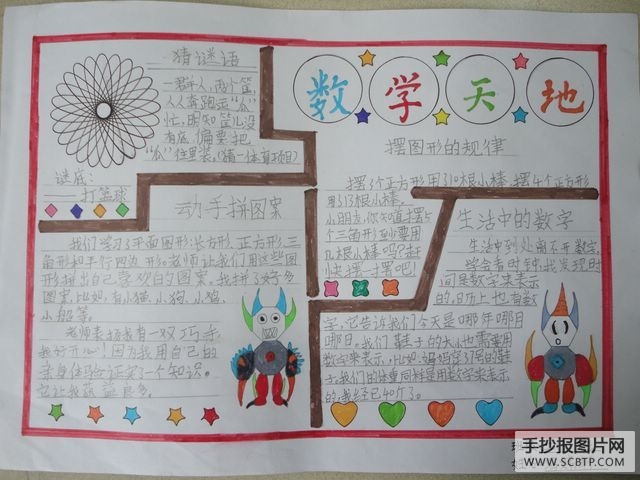 数学天地
猜谜语
一群人，两个筐，
人人奔跑运“瓜”
忙，明知筐儿没
有底，偏要把
“瓜”往里装。(猜一体育项目)
谜底：
打篮球
动手拼图案
我们学习了平面图形:长方形、正方形、三
角形和平行四边形。老师让我们用这些图
形拼出自己喜欢的图案。我拼了好多
图案，比如:有小猫、小狗、小鸡、
小船等。
老师表扬我有一双巧手，
我好开心！因为我用自己的
亲身体验证实了一个知识。
它让我获益良多。
摆图形的规律
摆3个正方形用了10根小棒，摆4个正方形
用了13根小棒。
小朋友，你知道摆5
个三角形到要用
几根小棒吗？赶
快摆一摆吧！
生活中的数字
生活中到处离不开数字，
学会看时钟，我发现时
间是数字来表示
的，日历上也有数
字，它告诉我们今天是哪年哪月
哪日。我们鞋子的大小也需要用
数字来表示，比如:妈妈穿37号的鞋
子。我们的体重同样是用数字来表示
的，我已经40斤了。
手抄报图片网
WWW.SCBTP.COM